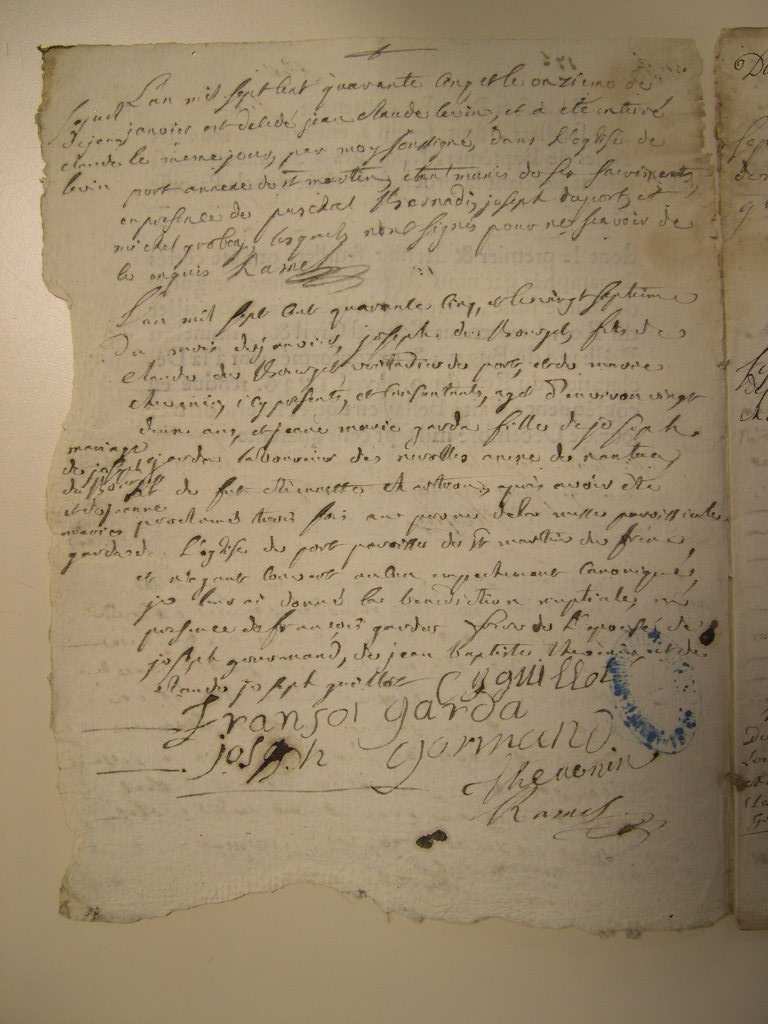 L'an mil sept cent quarante cinq et le onzieme de
janvier est décédé jean claude levin, et a été enterré
le meme jour, par moy soussigné, dans l'église de
port annexe de st martin, etant munis de ses sacrements
en présence de joseph duport, et
michel lesquels n'ont signés pour ne scavoir de
ce enquis Ramel
sepult
de jean
claude
levin
L'an mil sept cent quarante cinq, et le vingt septieme
du mois de janvier, joseph du Bourget fils de
claude du Bourget de port, et de marie
thevenin, icy présents, et consentants, agé d'environ vingt
d'une ans, et jeanne marie garda fille de joseph
garda laboureur des nerolles de nantua,
et de fut etiennette après avoir été
proclamés trois fois aux prones de la messe paroissiale
de L'église de port paroisse de st martin du frene,
et n'ayant aucun empechement canonique,
je leur ai donné la bénédiction nuptiale, en
présence de françois gardas frere de l'epouse, de
joseph gourmand, de jean baptiste thevenin, et de
claude joseph guillot
mariage
de joseph
du Bourget
et de jeanne
marie
garda
Cy guillot
fransoi garda
joseph gormand
thevenin
Ramel